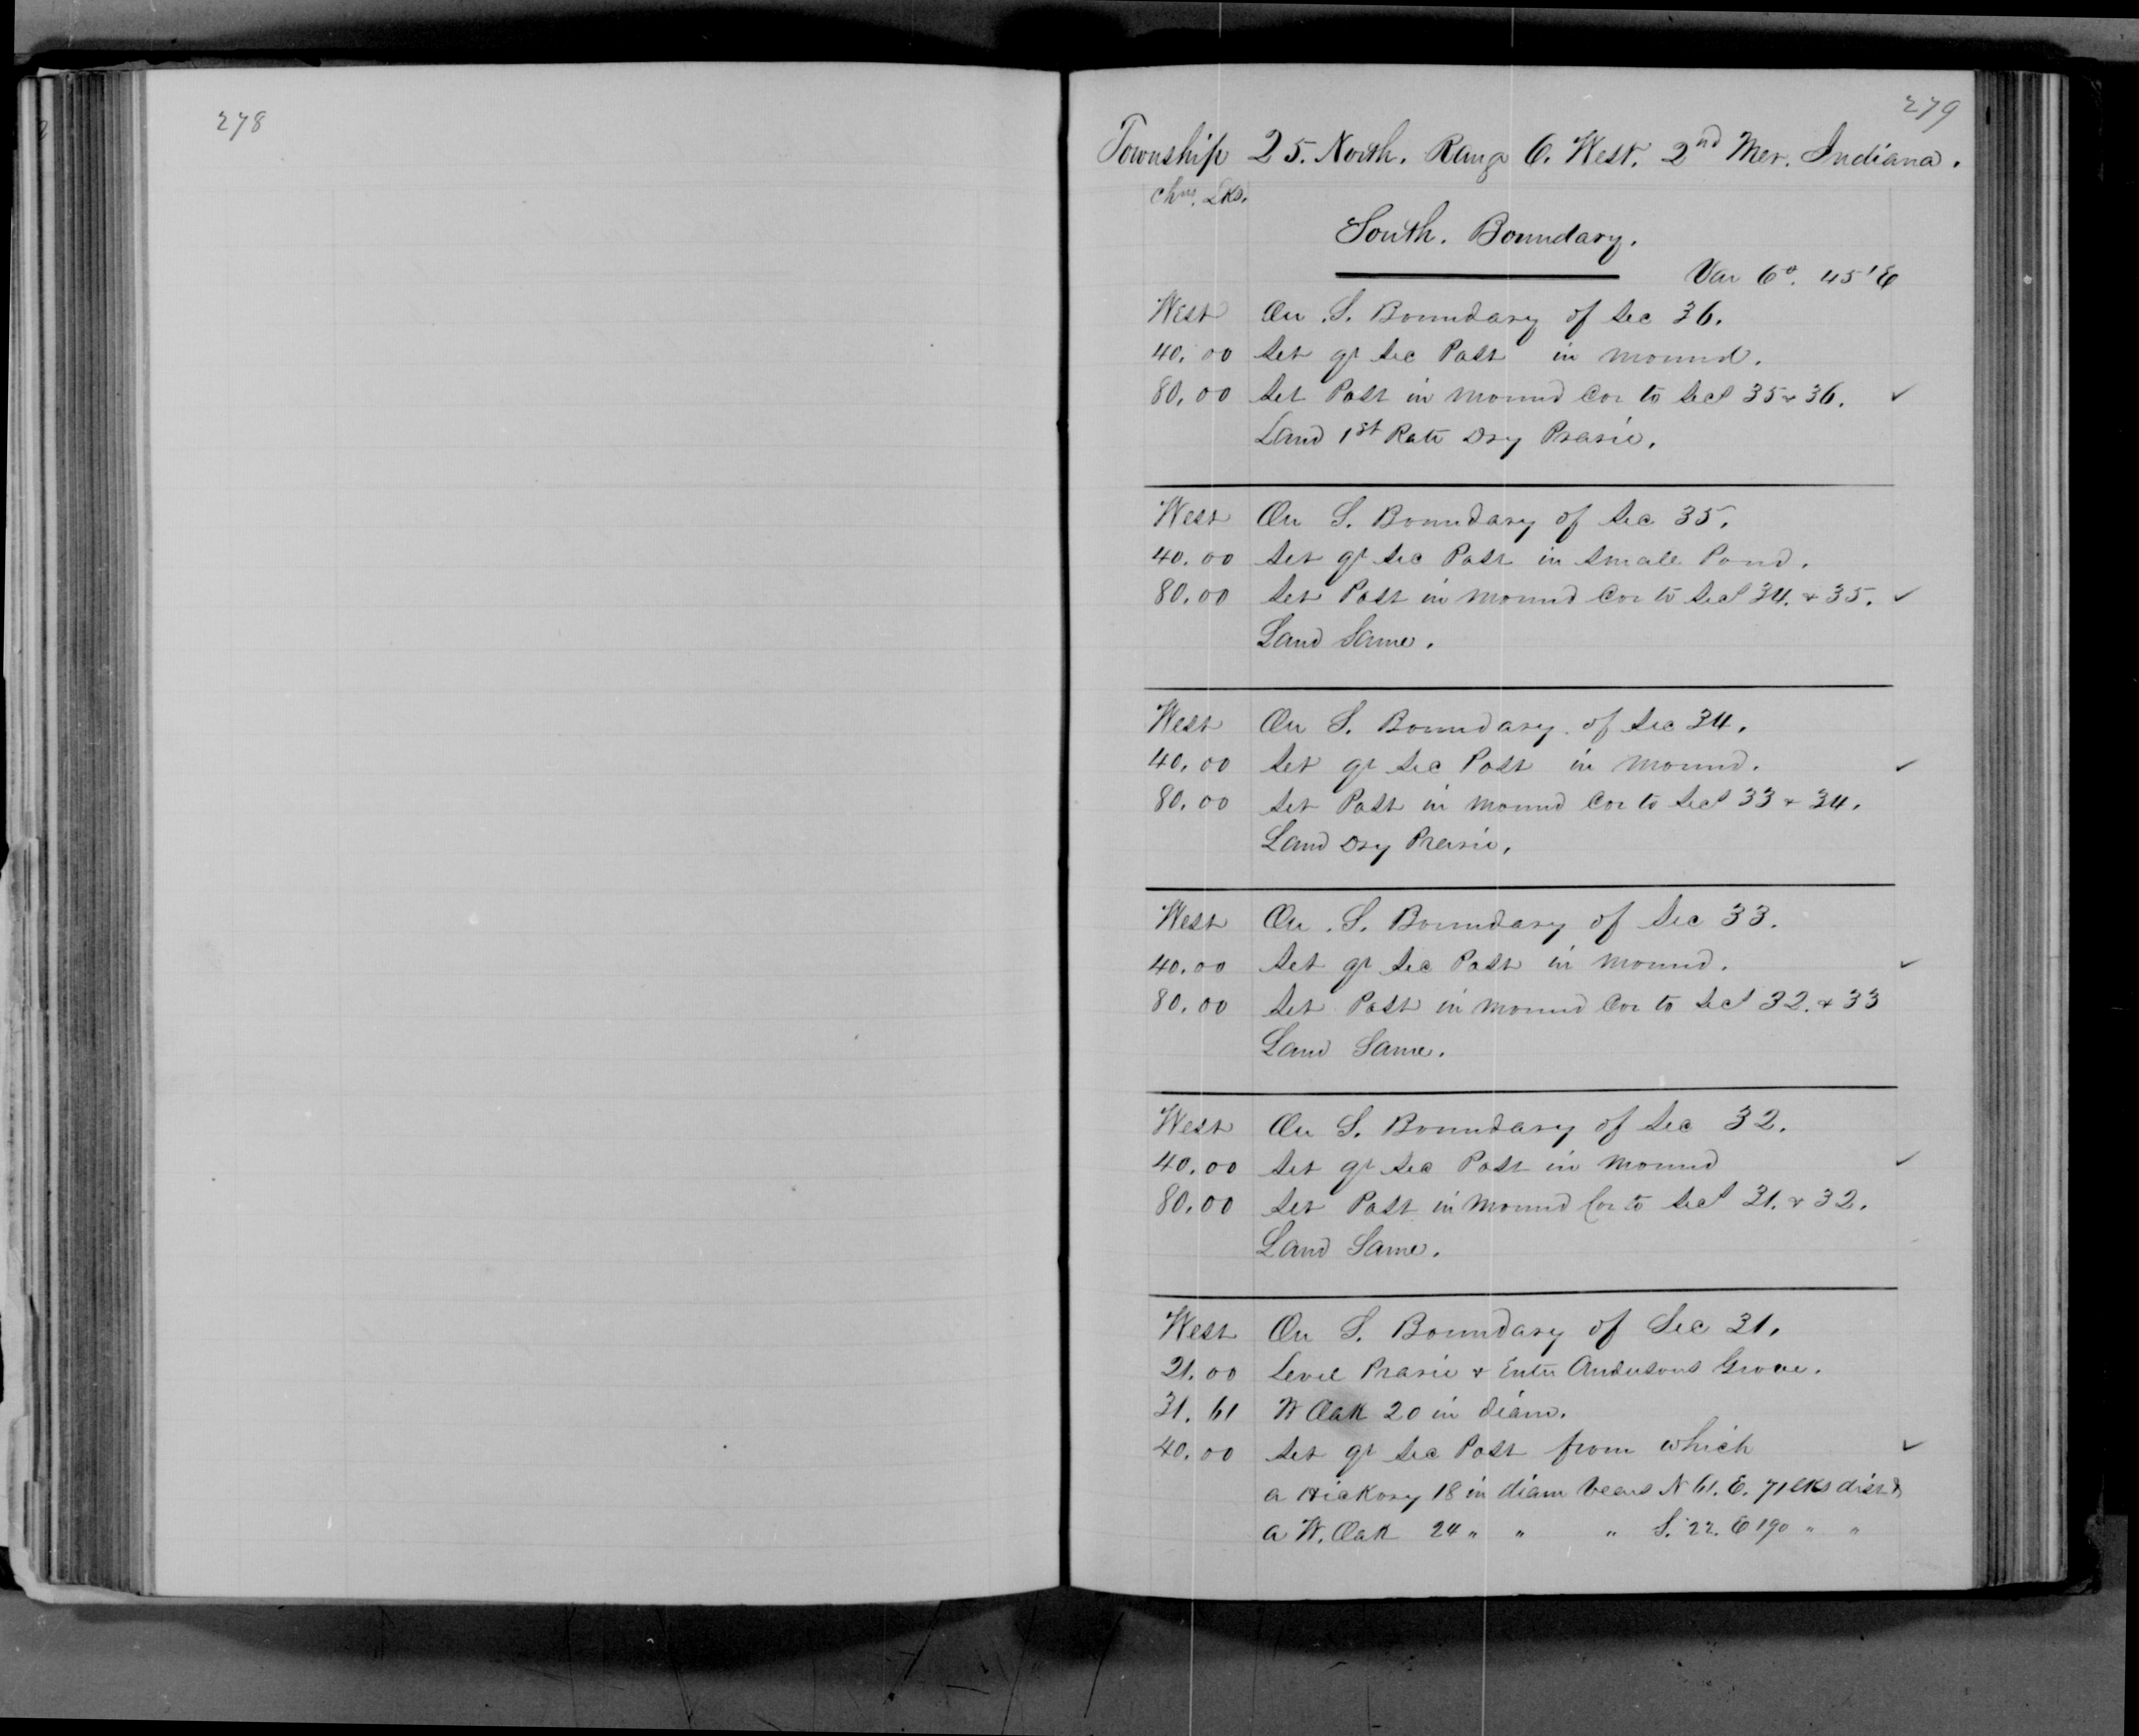 278
279
Township 25. North. Range 6. West. 2nd Mer. Indiana.
Chns. Lks.
South. Boundary.
Var 6°. 45' E
West On S. Boundary of Sec 36.
40.00 Set qr Sec Post in Mound.
80.00 Set Post in Mound Cor to Secs 35 & 36. ✓
Land 1st Rate Dry Prarie.
West On S. Boundary of Sec 35.
40.00 Set qr Sec Post in Small Pond.
80.00 Set Post in Mound Cor to Secs 34. & 35. ✓
Land Same.
West On S. Boundary of Sec 34.
40.00 Set qr Sec Post in Mound. ✓
80.00 Set Post in Mound Cor to Secs 33 & 34.
Land Dry Prarie.
West On S. Boundary of Sec 33.
40.00 Set qr Sec Post in Mound. ✓
80.00 Set Post in Mound Cor to Secs 32. & 33
Land Same.
West On S. Boundary of Sec 32.
40.00 Set qr Sec Post in Mound ✓
80.00 Set Post in Mound Cor to Secs 31. & 32.
Land Same.
West On S. Boundary of Sec 31.
21.00 Level Prarie & Enter Andersons Grove.
31.61 W Oak 20 in diam.
40.00 Set qr Sec Post from which ✓
a Hickory 18 in diam bears N 61. E. 71 lks dist &
a W. Oak 24 " " " S. 22. E 190 " "